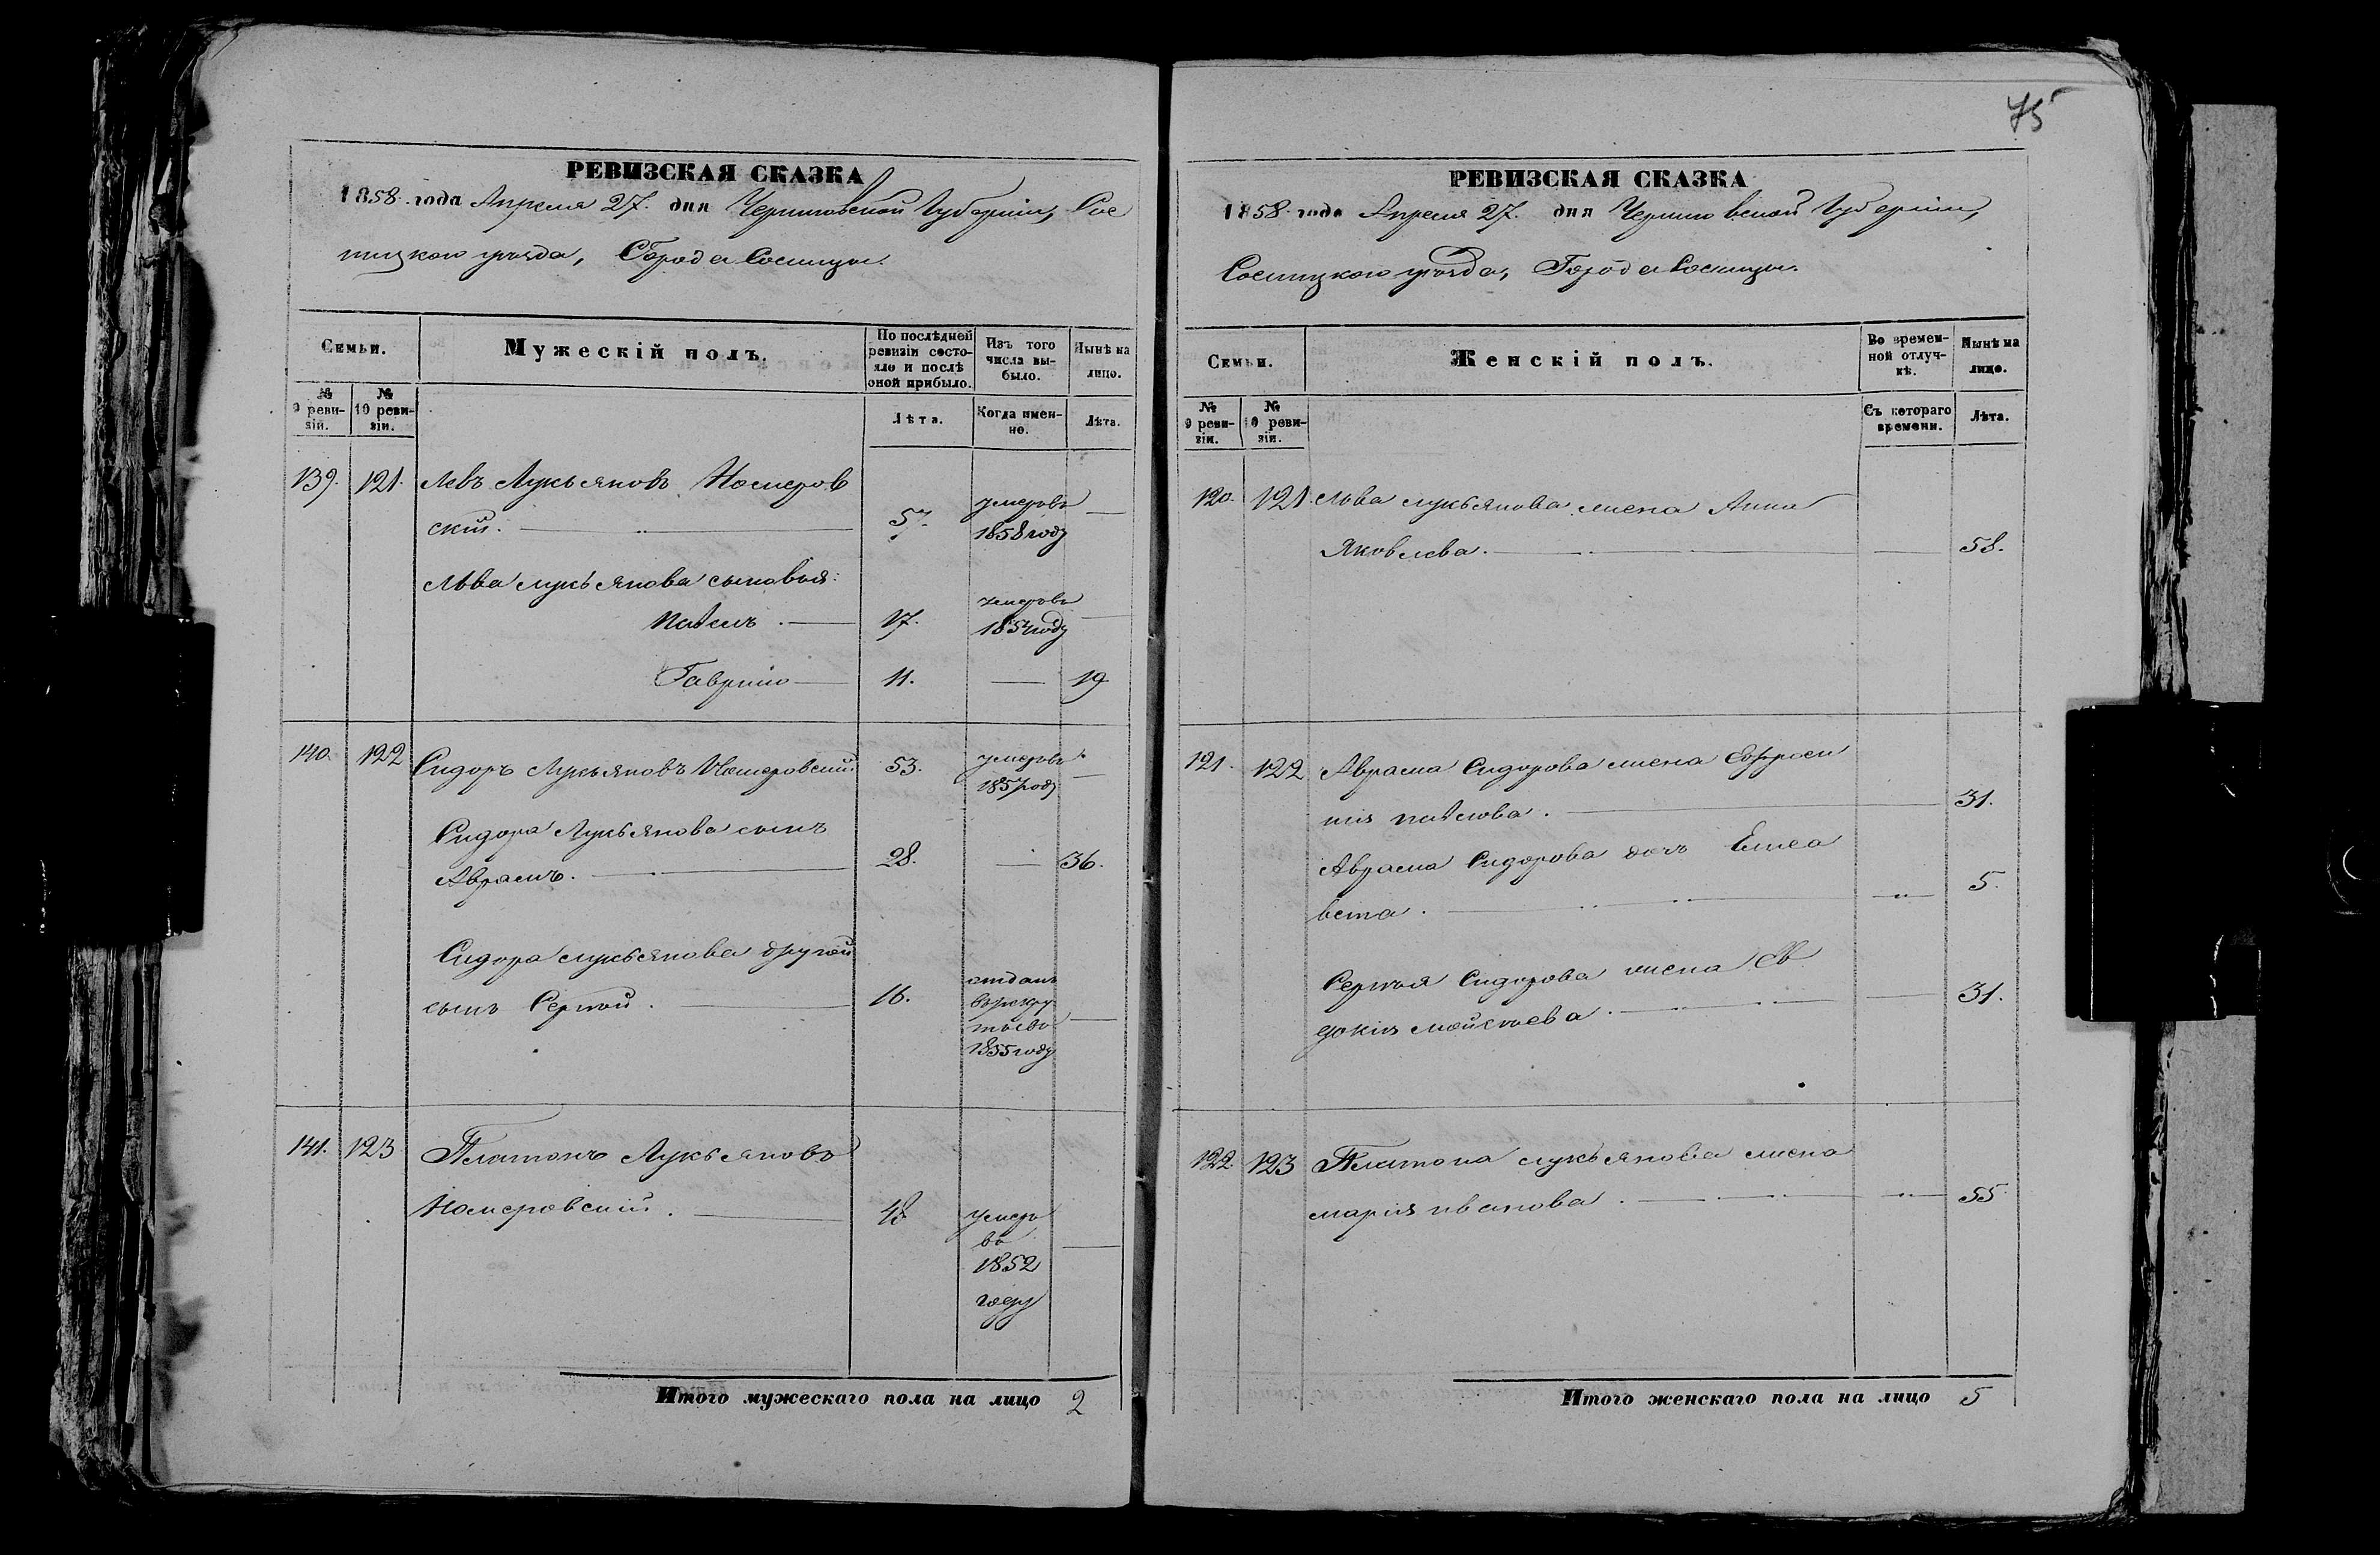 РЕВИЗСКАЯ СКАЗКА
1858 года Апреля 27. дня Черниговской Губерніи, Сос
ницкого уезда, Города Сосницы.
Семьи.
Мужескій полъ.
По послѣдней
ревизіи состо-
яло и послѣ
оной прибыло.
Изъ того
числа вы-
было.
Нынѣ на
лицо.
№
9 реви-
зіи.
№
10 реви-
зіи.
Лѣта.
Когда имен-
но.
Лѣта.
139. 121. Левъ Лукьяновъ
скій. 57. умеръ въ
1858 году
Льва Лукьянова сыновья:
17. умеръ въ
году
Гавріило 11. 19
140. 122 Сидоръ Лукьяновъ 53. умеръ въ
1857 году
Сидора Лукьянова сынъ
Аврамъ. 28. 36.
Сидора Лукьянова другой
сынъ Сергей. 16. отданъ
въ рекру
ты въ
1855 году
141. 123 Платонъ Лукьяновъ
48 умеръ
въ
1852
году
Итого мужескаго пола на лицо 2
75
РЕВИЗСКАЯ СКАЗКА
1858 года Апреля 27. дня Черниговской Губерніи,
Сосницкого уезда, Города Сосницы.
Семьи.
Женскій полъ.
Во времен-
ной отлуч-
кѣ.
Нынѣ на
лицо.
№
9 реви-
зіи.
№
10 реви-
зіи.
Съ котораго
времени.
Лѣта.
120. 121. Льва Лукьянова жена Анна
Яковлева. 58.
121. 122 Аврама Сидорова жена Ефроси
нія 31.
Аврама Сидорова дочь Елиса
вета. 5.
Сергея Сидорова жена Ев
докія Мойсеева. 31.
122. 123 Платона Лукьянова жена
Марія Иванова. 55
Итого женскаго пола на лицо 5